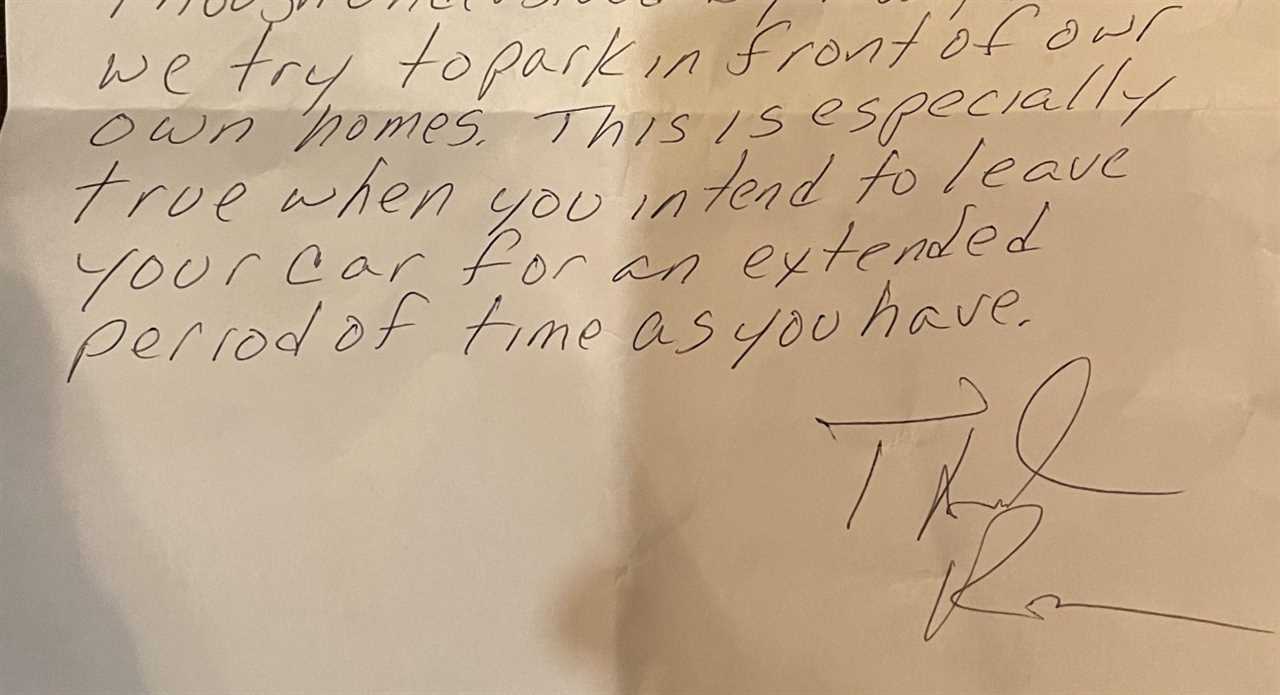 we try to park in front of our
own homes. This is especially
true when you intend to leave
your car for an extended
period of time as you have.